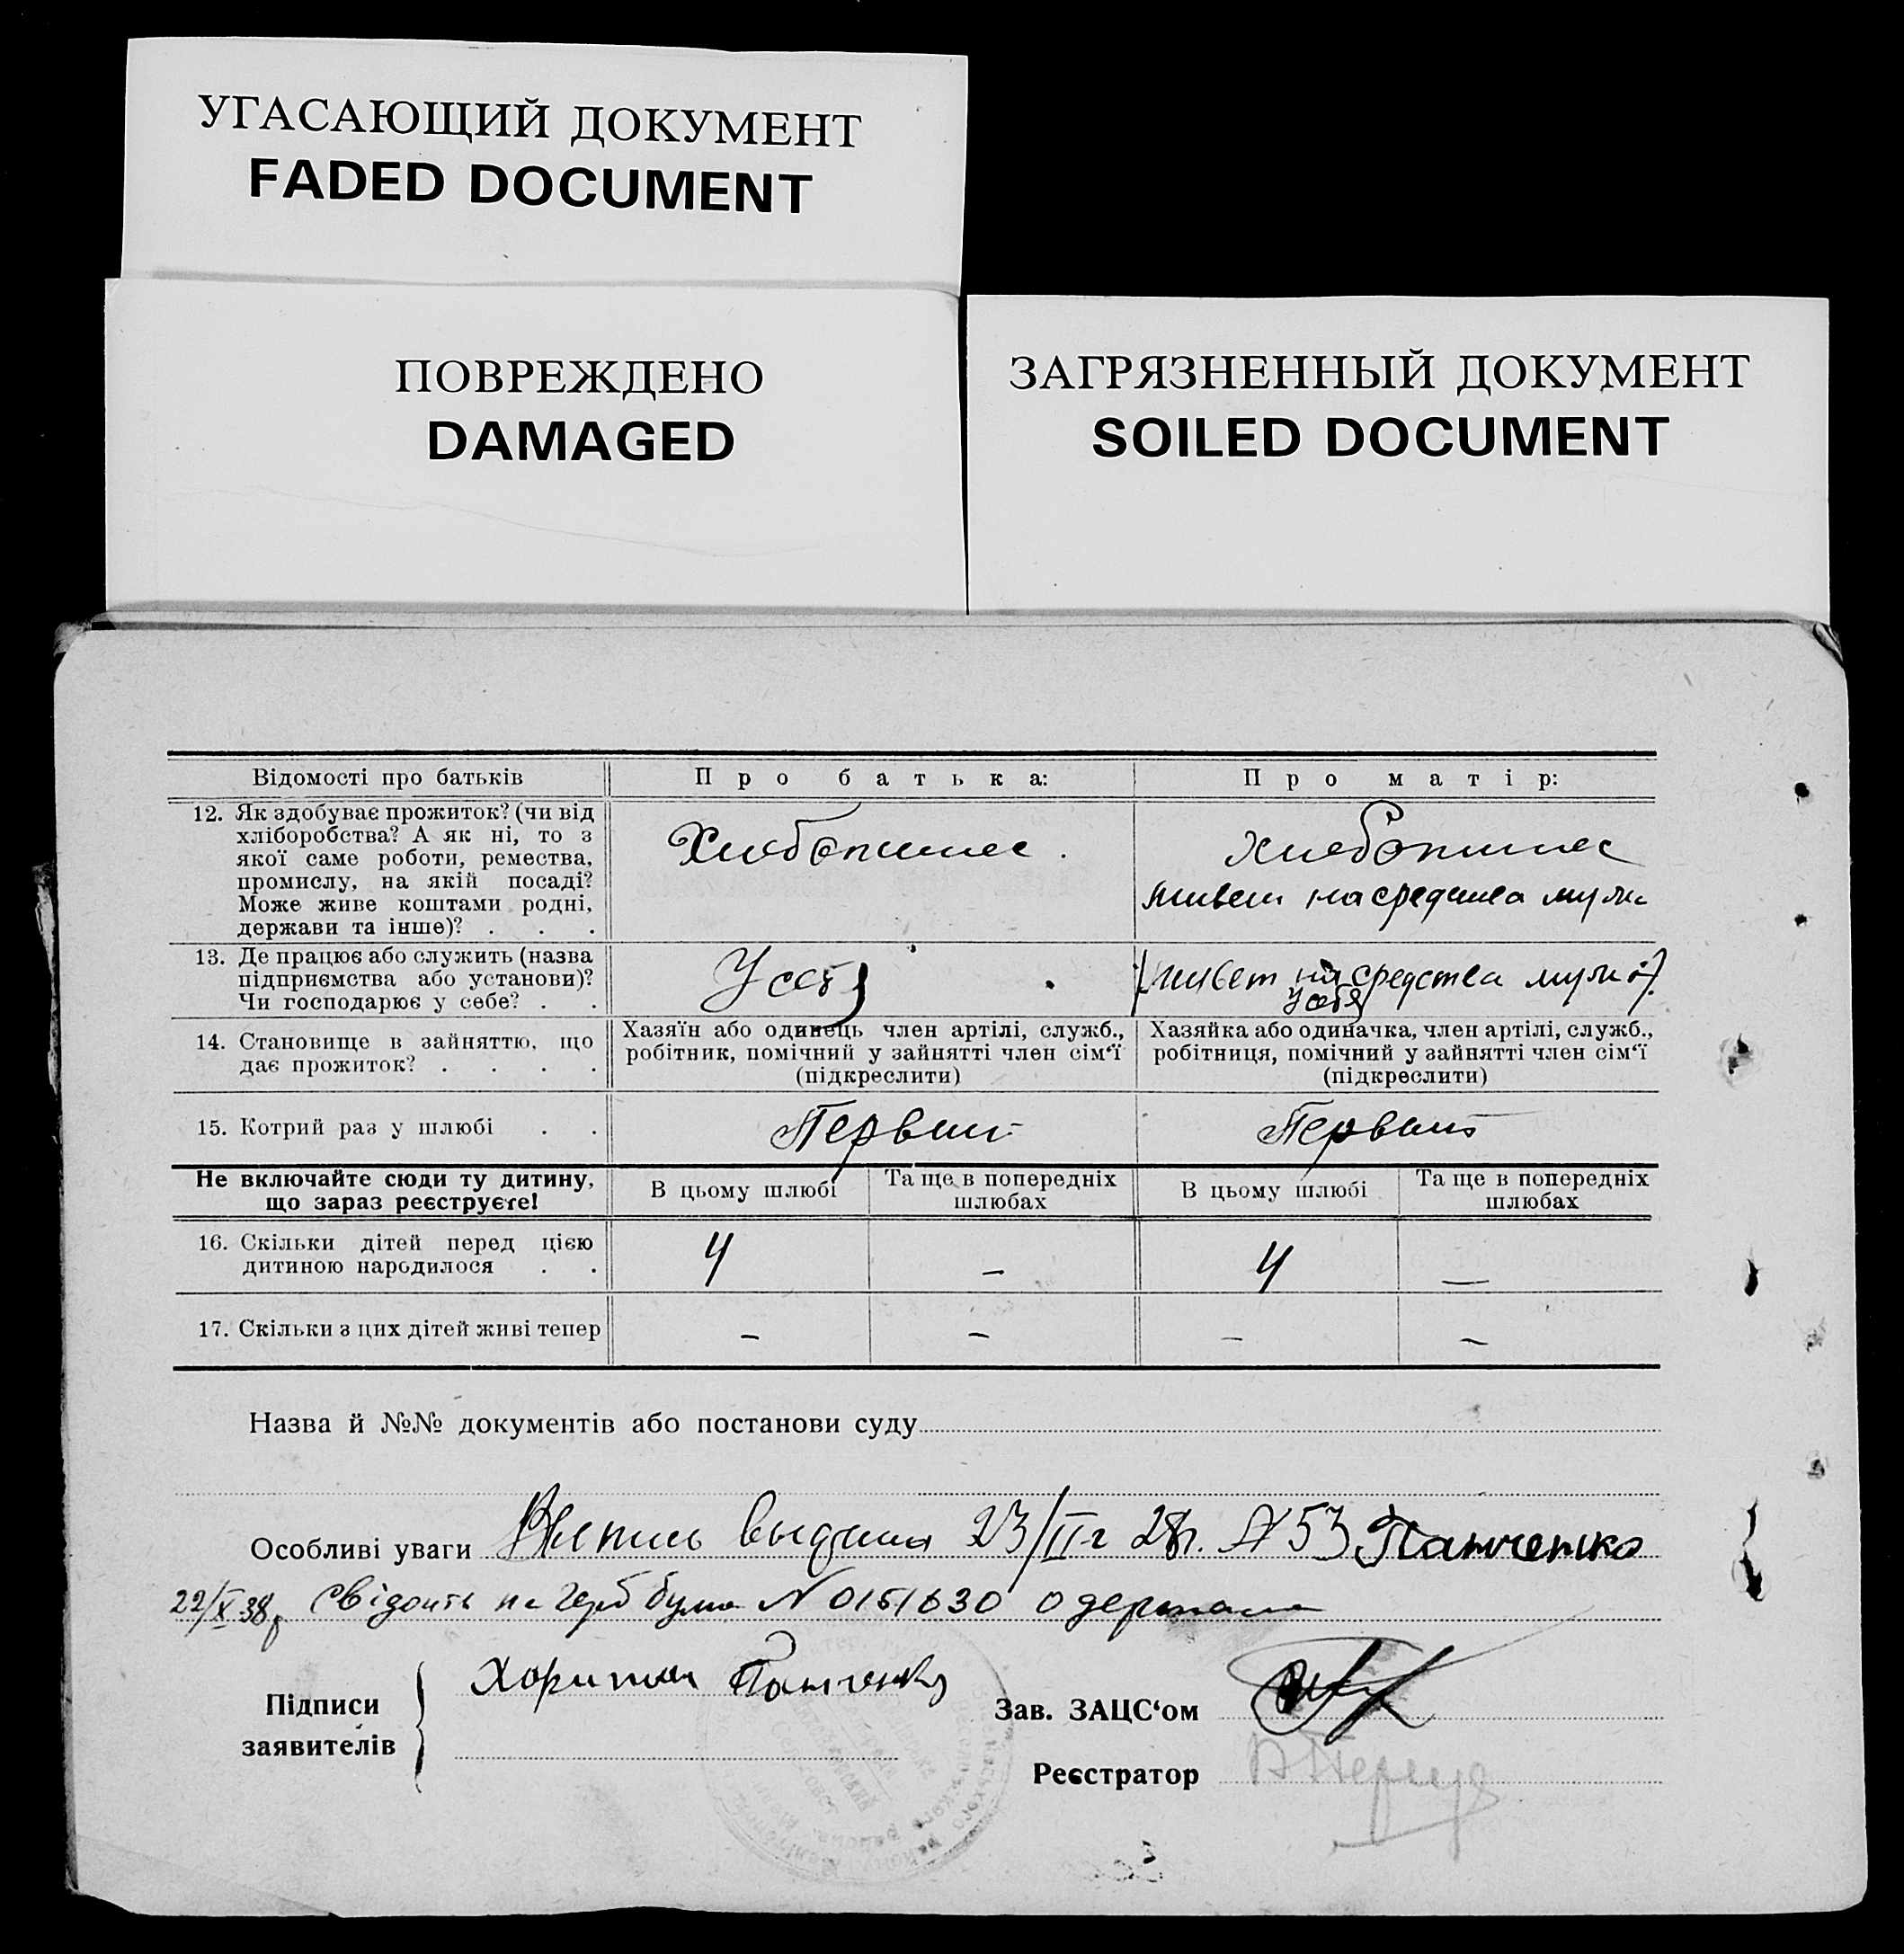 УГАСАЮЩИЙ ДОКУМЕНТ
FADED DOCUMENT
ПОВРЕЖДЕНО
DAMAGED
ЗАГРЯЗНЕННЫЙ ДОКУМЕНТ
SOILED DOCUMENT
Відомості про батьків
Про батька:
Про матір:
12. Як здобуває прожиток? (чи від
хліборобства? А як ні, то з
якої саме роботи, ремества,
промислу, на якій посаді?
Може живе коштами родні,
держави та інше)? . . .
Хлебопашес.
Хлебопашес
живет на средства мужа
13. Де працює або служить (назва
підприємства або установи)?
Чи господарює у себе? . .
У себя
(живет на средства мужа).
У себя
14. Становище в зайняттю, що
дає прожиток? . . . .
Хазяїн або одинець член артілі, служб.,
робітник, помічний у зайнятті член сім‘ї
(підкреслити)
Хазяйка або одиначка, член артілі, служб.,
робітниця, помічний у зайнятті член сім‘ї
(підкреслити)
15. Котрий раз у шлюбі . .
Первый
Первый
Не включайте сюди ту дитину,
що зараз реєструєте!
В цьому шлюбі
Та ще в попередніх
шлюбах
В цьому шлюбі
Та ще в попередніх
шлюбах
16. Скільки дітей перед цією
дитиною народилося . .
4
–
4
—
17. Скільки з цих дітей живі тепер
–
–
–
–
Назва й №№ документів або постанови суду
Особливі уваги Выпись выдана 23/II-г 28г. № 53 Панченко
22/X 38р Свідоцтв на герб бума N 0151630 одержала
Підписи
заявителів
Харитон Панченко
Зав. ЗАЦС‘ом
Реєстратор